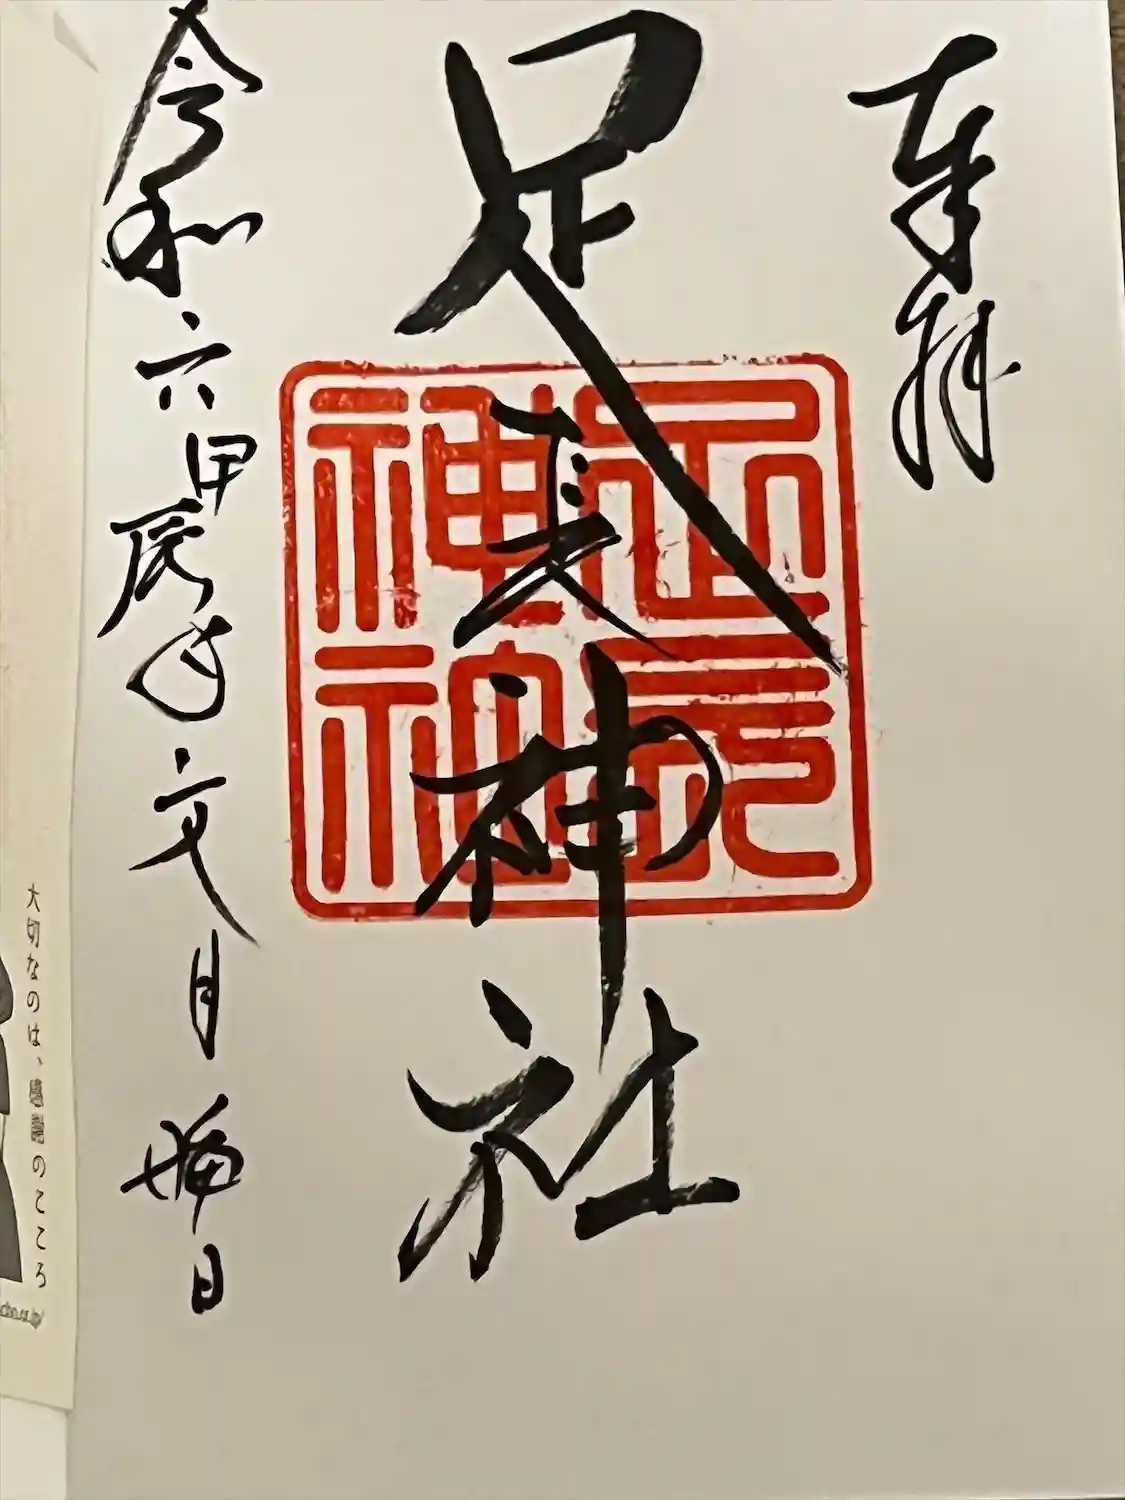 奉拝
足長神社
足長
神社
令和六甲辰年文月晦日
大切なのは、感謝のこころ